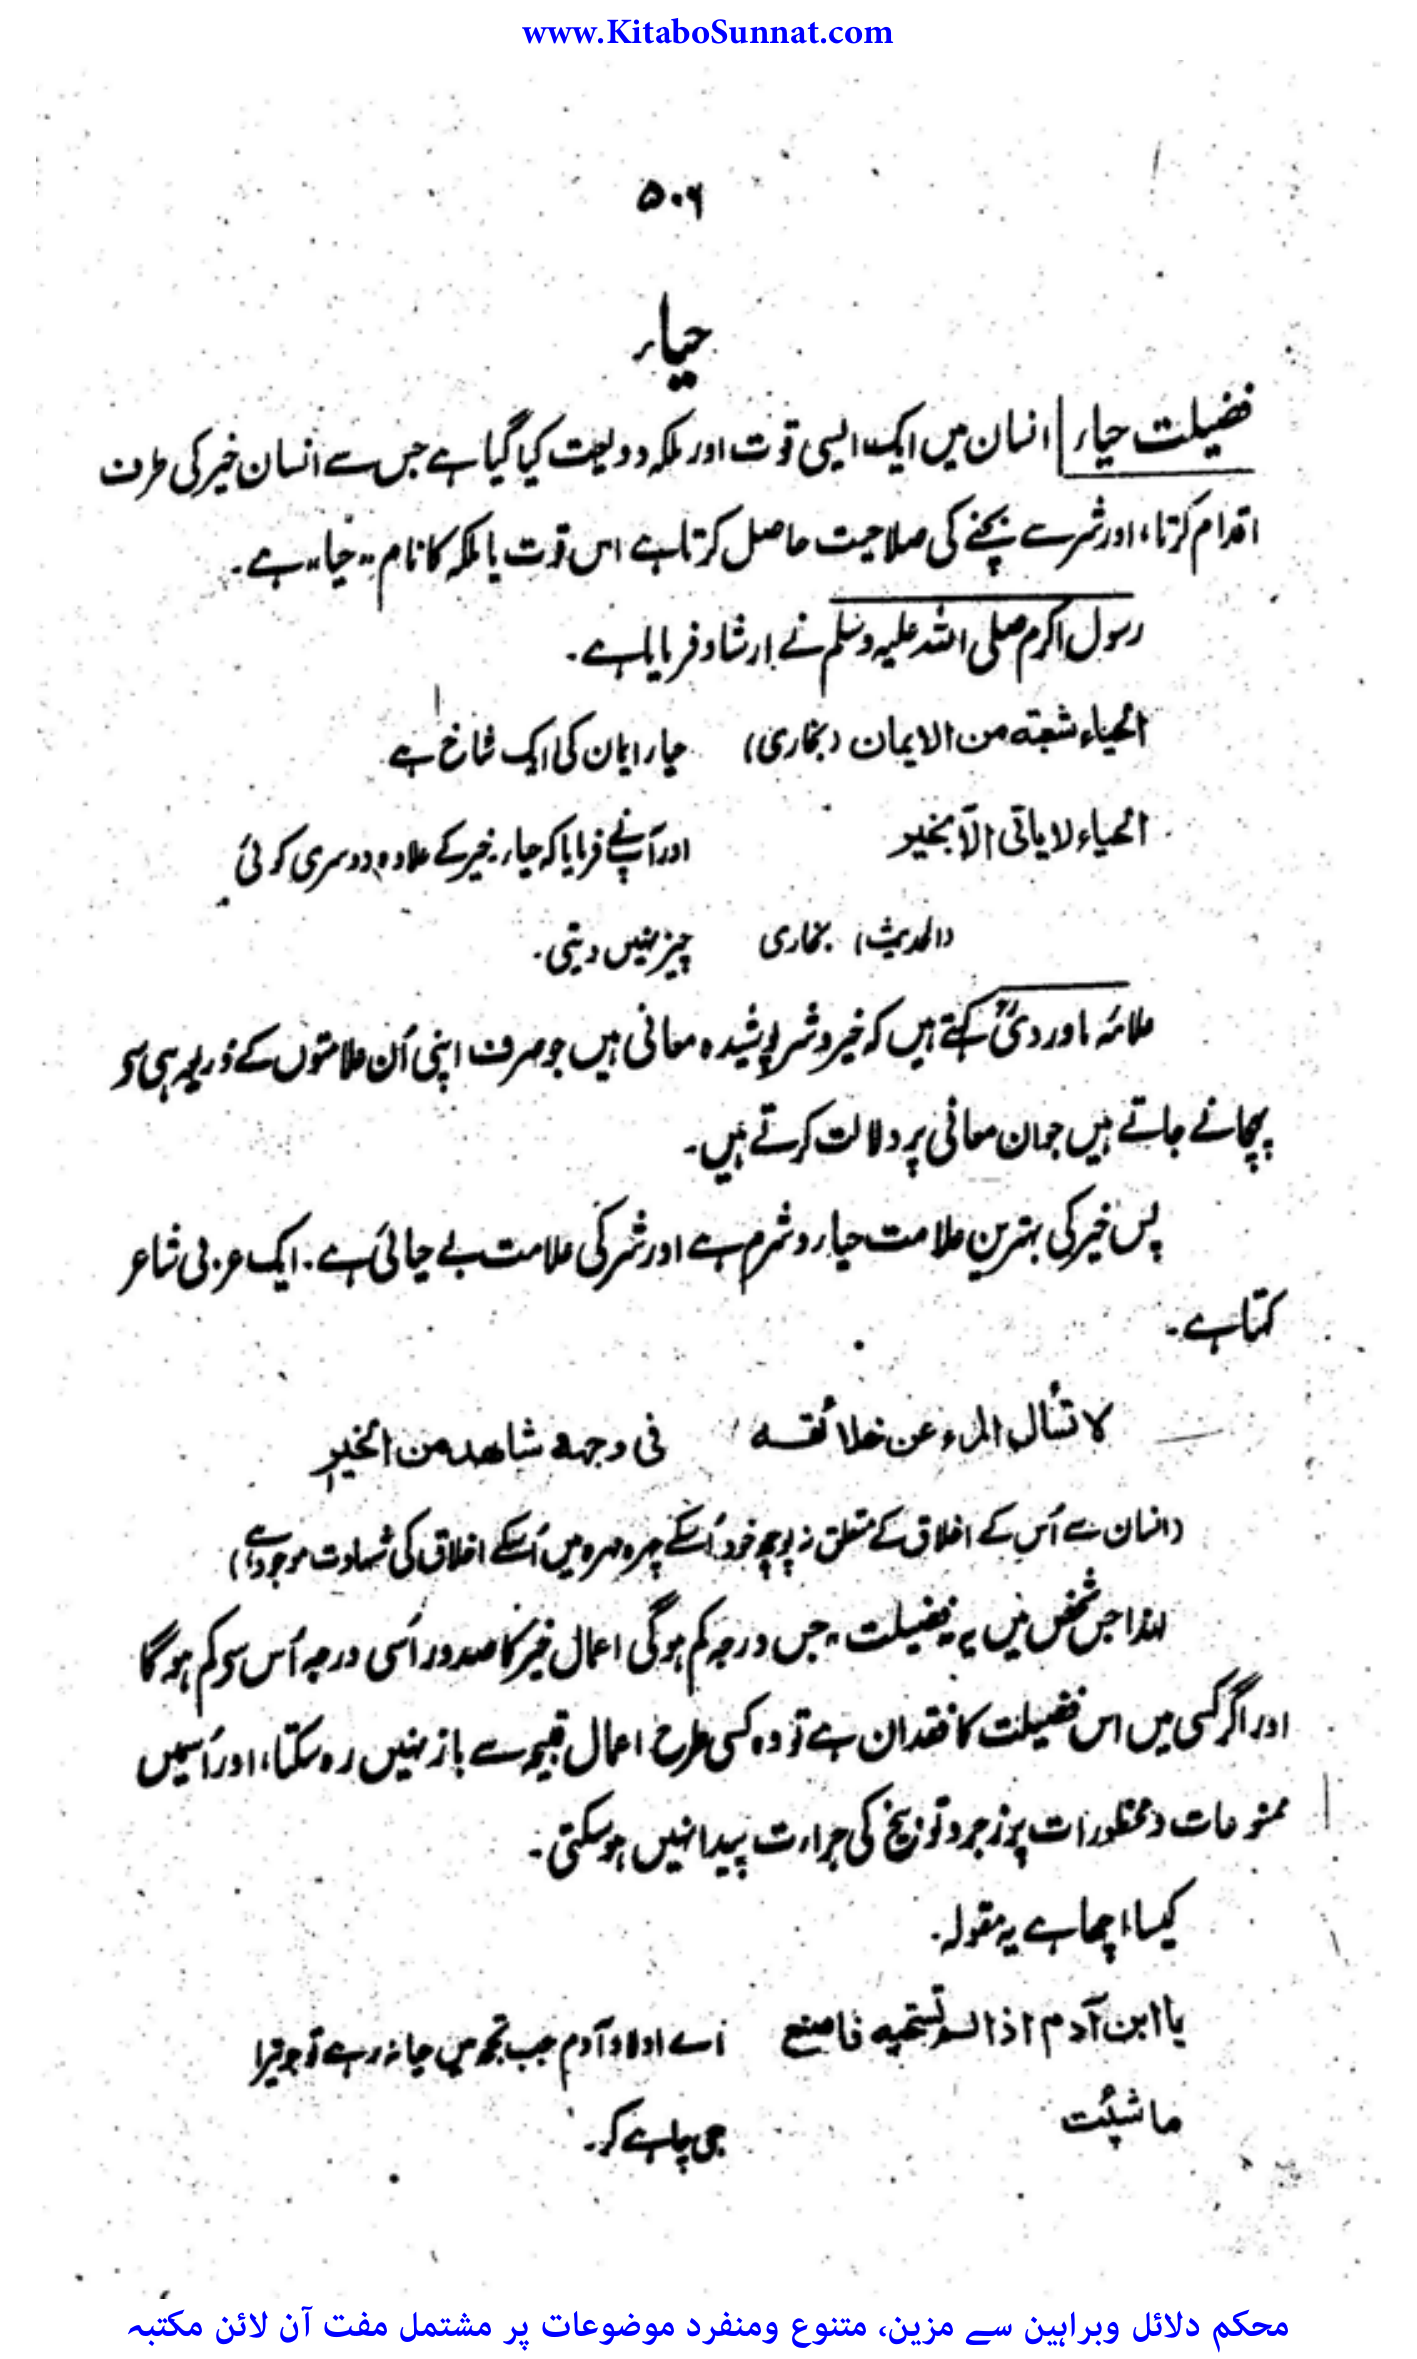 www.KitaboSunnat.com
۵۰۶
حیاء
فضیلت حیاء | انسان میں ایک ایسی قوت اور ملکہ ودیعت کیا گیا ہے جس سے انسان خیر کی طرف
اقدام کرتا، اور شر سے بچنے کی صلاحیت حاصل کرتا ہے اس قوت یا ملکہ کا نام "حیا" ہے۔
رسول اکرم صلی اللہ علیہ وسلم نے ارشاد فرمایا ہے۔
الحیاء شعبتہ من الایمان (بخاری) حیاء ایمان کی ایک شاخ ہے
الحیاء لا یاتی الّا بخیر اور آپ نے فرمایا کہ حیاء، خیر کے علاوہ دوسری کوئی
(الحدیث) بخاری چیز نہیں دیتی۔
علامہ ماوردیؒ کہتے ہیں کہ خیر و شر پوشیدہ معانی ہیں جو صرف اپنی اُن علامتوں کے ذریعہ ہی سے
پہچانے جاتے ہیں جو ان معانی پر دلالت کرتے ہیں۔
پس خیر کی بہترین علامت حیاء و شرم ہے اور شر کی علامت بے حیائی ہے۔ ایک عربی شاعر
کہتا ہے۔
لا تسأل المرء عن خلائقہ فی وجہہ شاھد من الخیر
(انسان سے اُس کے اخلاق کے متعلق نہ پوچھ خود اُسکے چہرہ مہرہ میں اُسکے اخلاق کی شہادت موجود ہے)
لہذا جس شخص میں یہ "فضیلت" جس درجہ کم ہوگی اعمال خیر کا صدور اُسی درجہ اُس سے کم ہوگا
اور اگر کسی میں اس فضیلت کا فقدان ہے تو وہ کسی طرح اعمال قبیحہ سے باز نہیں رہ سکتا، اور اُسمیں
ممنوعات و محظورات پر زجر و توبیخ کی جراءت پیدا نہیں ہو سکتی۔
کیسا اچھا ہے یہ مقولہ۔
یا ابن آدم اذا لم تستحیہ فاصنع اے اولاد آدم جب تجھ میں حیا نہ رہے تو جو تیرا
ما شئت جی چاہے کر۔
محکم دلائل وبراہین سے مزین، متنوع ومنفرد موضوعات پر مشتمل مفت آن لائن مکتبہ